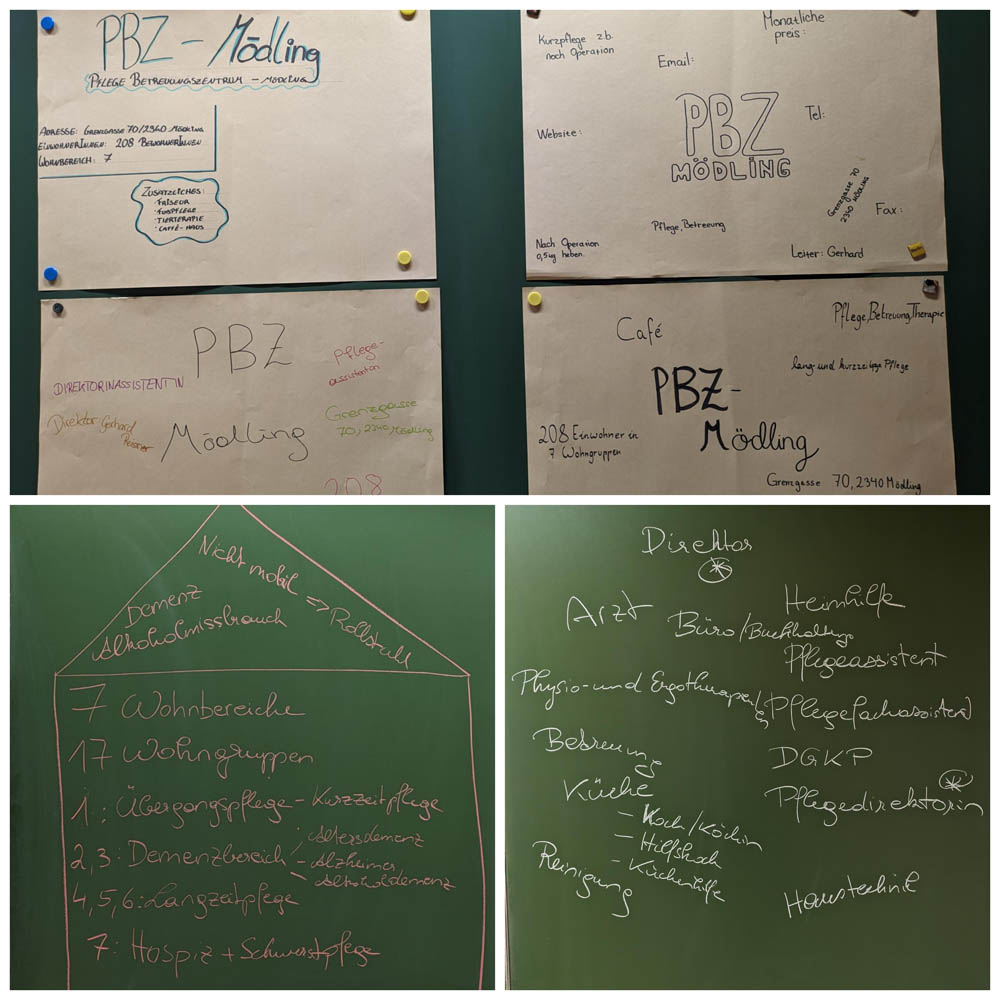 PBZ - Mödling
PFLEGE BETREUUNGSZENTRUM - MÖDLING
ADRESSE: GRENZGASSE 70/2340 MÖDLING
EINWOHNERINNEN: 208 BEWOHNERINNEN
WOHNBEREICH: 7
ZUSÄTZLICHES:
· FRISEUR
· FUßPFLEGE
· TIERTERAPIE
· CAFÉ-HAUS
Kurzpflege z.b.
nach Operation
Monatliche
preis:
Email:
PBZ
MÖDLING
Tel:
Website:
Grenzgasse 70
2340 MÖDLING
Fax:
Pflege, Betreuung
Nach Operation
heben.
Leiter: Gerhard
PBZ
Mödling
DIREKTORINASSISTENTIN
Pflege-
assistenten
Direktor Gerhard
Grenzgasse
70, 2340 Mödling
208
Café
Pflege, Betreuung, Therapie
lang- und kurzzeitige Pflege
PBZ-
Mödling
208 Einwohner in
7 Wohngruppen
Grenzgasse 70, 2340 Mödling
Nicht mobil => Rollstuhl
Demenz
Alkoholmissbrauch
7 Wohnbereiche
17 Wohngruppen
1.: Übergangspflege - Kurzzeitpflege
2, 3: Demenzbereich
- Altersdemenz
- Alzheimer
- Alkoholdemenz
4, 5, 6: Langzeitpflege
7: Hospiz + Schwerstpflege
Direktor
Arzt
Büro/Buchhaltung
Heimhilfe
Pflegeassistent
Physio- und Ergotherapeut
Pflegefachassistent
Betreuung
DGKP
Küche
Pflegedirektorin
- Koch/Köchin
- Hilfskoch
- Küchenhilfe
Reinigung
Haustechnik